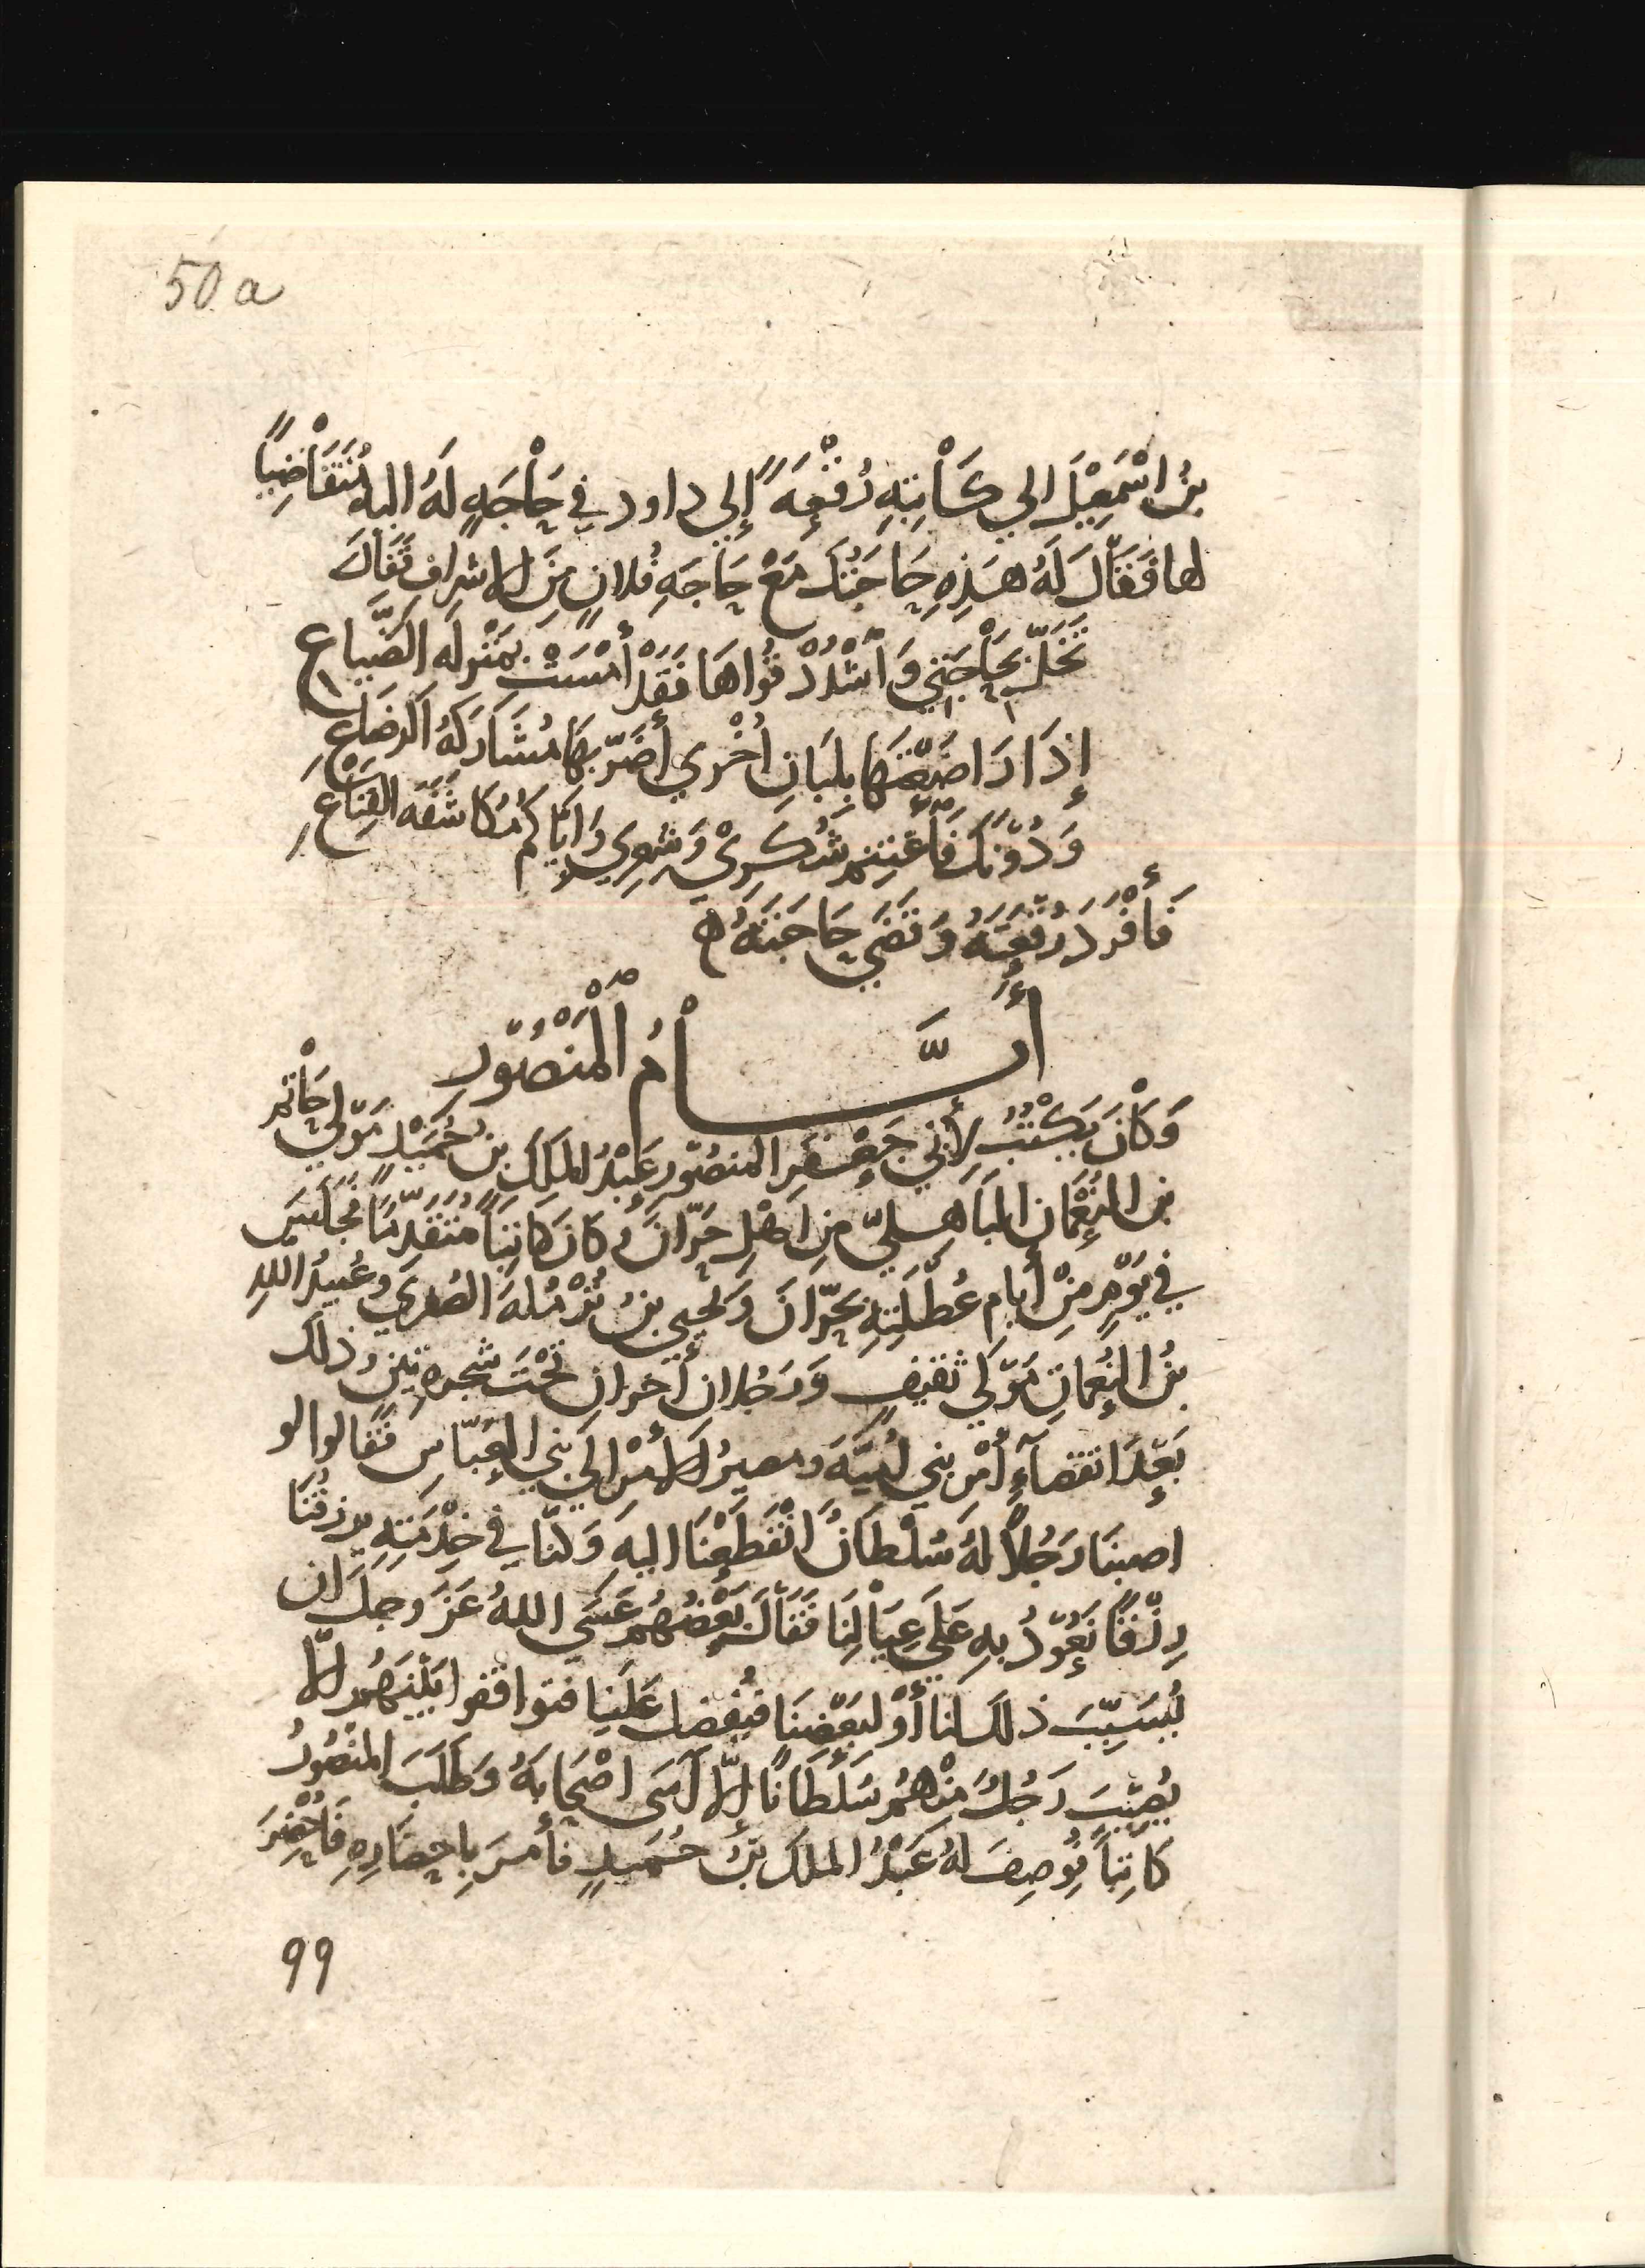 50 a
بنُ اسْمَعِيْلَ الي كَاْتِبِهِ رُقْعِهً إلي داود في حَاْجَهٍ لَهُ اليهِ مُتَقَاْضِيًا
لها فَقَاْلَ لَهُ هَذِهِ حَاجَتُكَ مَعْ حَاجَهِ فُلانٍ مِنَ الاشراف فَقَاْلَ
تَخَلَّ بِحَاْجَتِي وَاَشْدُدْ قُوَاهَا فَقَدْ أَمْسَتْ بمَنْزِلَه الضَّيَاعِ
إِذَا رَاضَعْتَهَا بِلِبَانِ أُخْرَي أَضَرَّ بِهَا مُشَارَكَهُ الرضَاعِ
وَدُوْنَكَ فَأَغْتَنِمْ شُكْرِيْ وَشِعْرِي وَايّاكُم مُكَاشَفَه القِنَاعِ
فَأَفْرَدَ رُقْعَتَهُ وَقَضَي حَاجَتَهُ ه
أَيَّــامُ الْمَنْصُوْرِ
وَكَاْنَ يَكْتُبُ لأَبِي جَعْفَرِ المنصُوْر عَبْدُ الملكَ بنُ حُمَيْدٍ مَوْلَي حَاْتمِ
بن النُعْمَان البَاهِليّ مِن اهْلِ حَرّانَ وكانَ كَاتِبًا مُتَقَدِّمًا فجَلَسَ
في يَوْمٍ مِنْ أيام عُطْلَتِهِ بحَرّانَ وَيحيي بنُ نُزْمُلهَ الصُفرَي وعُبيدُ اللهِ
بنُ النُعْمانِ مَوْلَي ثَقيفٍ وَرَجُلانِ أَخَرانِ تَحْتَ شجرهِ تينٍ وذلك
بَعْدَ انقضَآءِ أَمْرِ بني أُمَيَّهَ ومصيرُ الأَمْرِ الَي بني العَبّاسِ فَقَالُوا لو
اصبنَا رَجُلاً لهُ سُلْطانٌ انْقَطَعْنَا اليهِ وَكنَّا في خِدْمَتِهِ يرزقُنَا
رِزْقًا نَعُوْدُ بهِ عَلَي عِيَالِنَا فَقَالَ بَعْضُهُم عَسَي اللهُ عَزَّ وجلَّ ان
يُسَبِّبَ ذلكَ لنا أَوْ لبَعْضِنَا فيُفضِلَ عَلَينا فتوافقوا بَيْنَهُم ألاّ
يُصِيْبَ رَجُلٌ مِنْهُم سُلْطَانًا إلاَّ آسَي اصْحَابَهُ وَطَلَبَ المنْصُورُ
كَاتِبًا فوُصِفَ لهُ عَبْدُ الملك بنُ حُميدٍ فأَمرَ بِاحضَارِهِ فَأُحْضِرَ
99